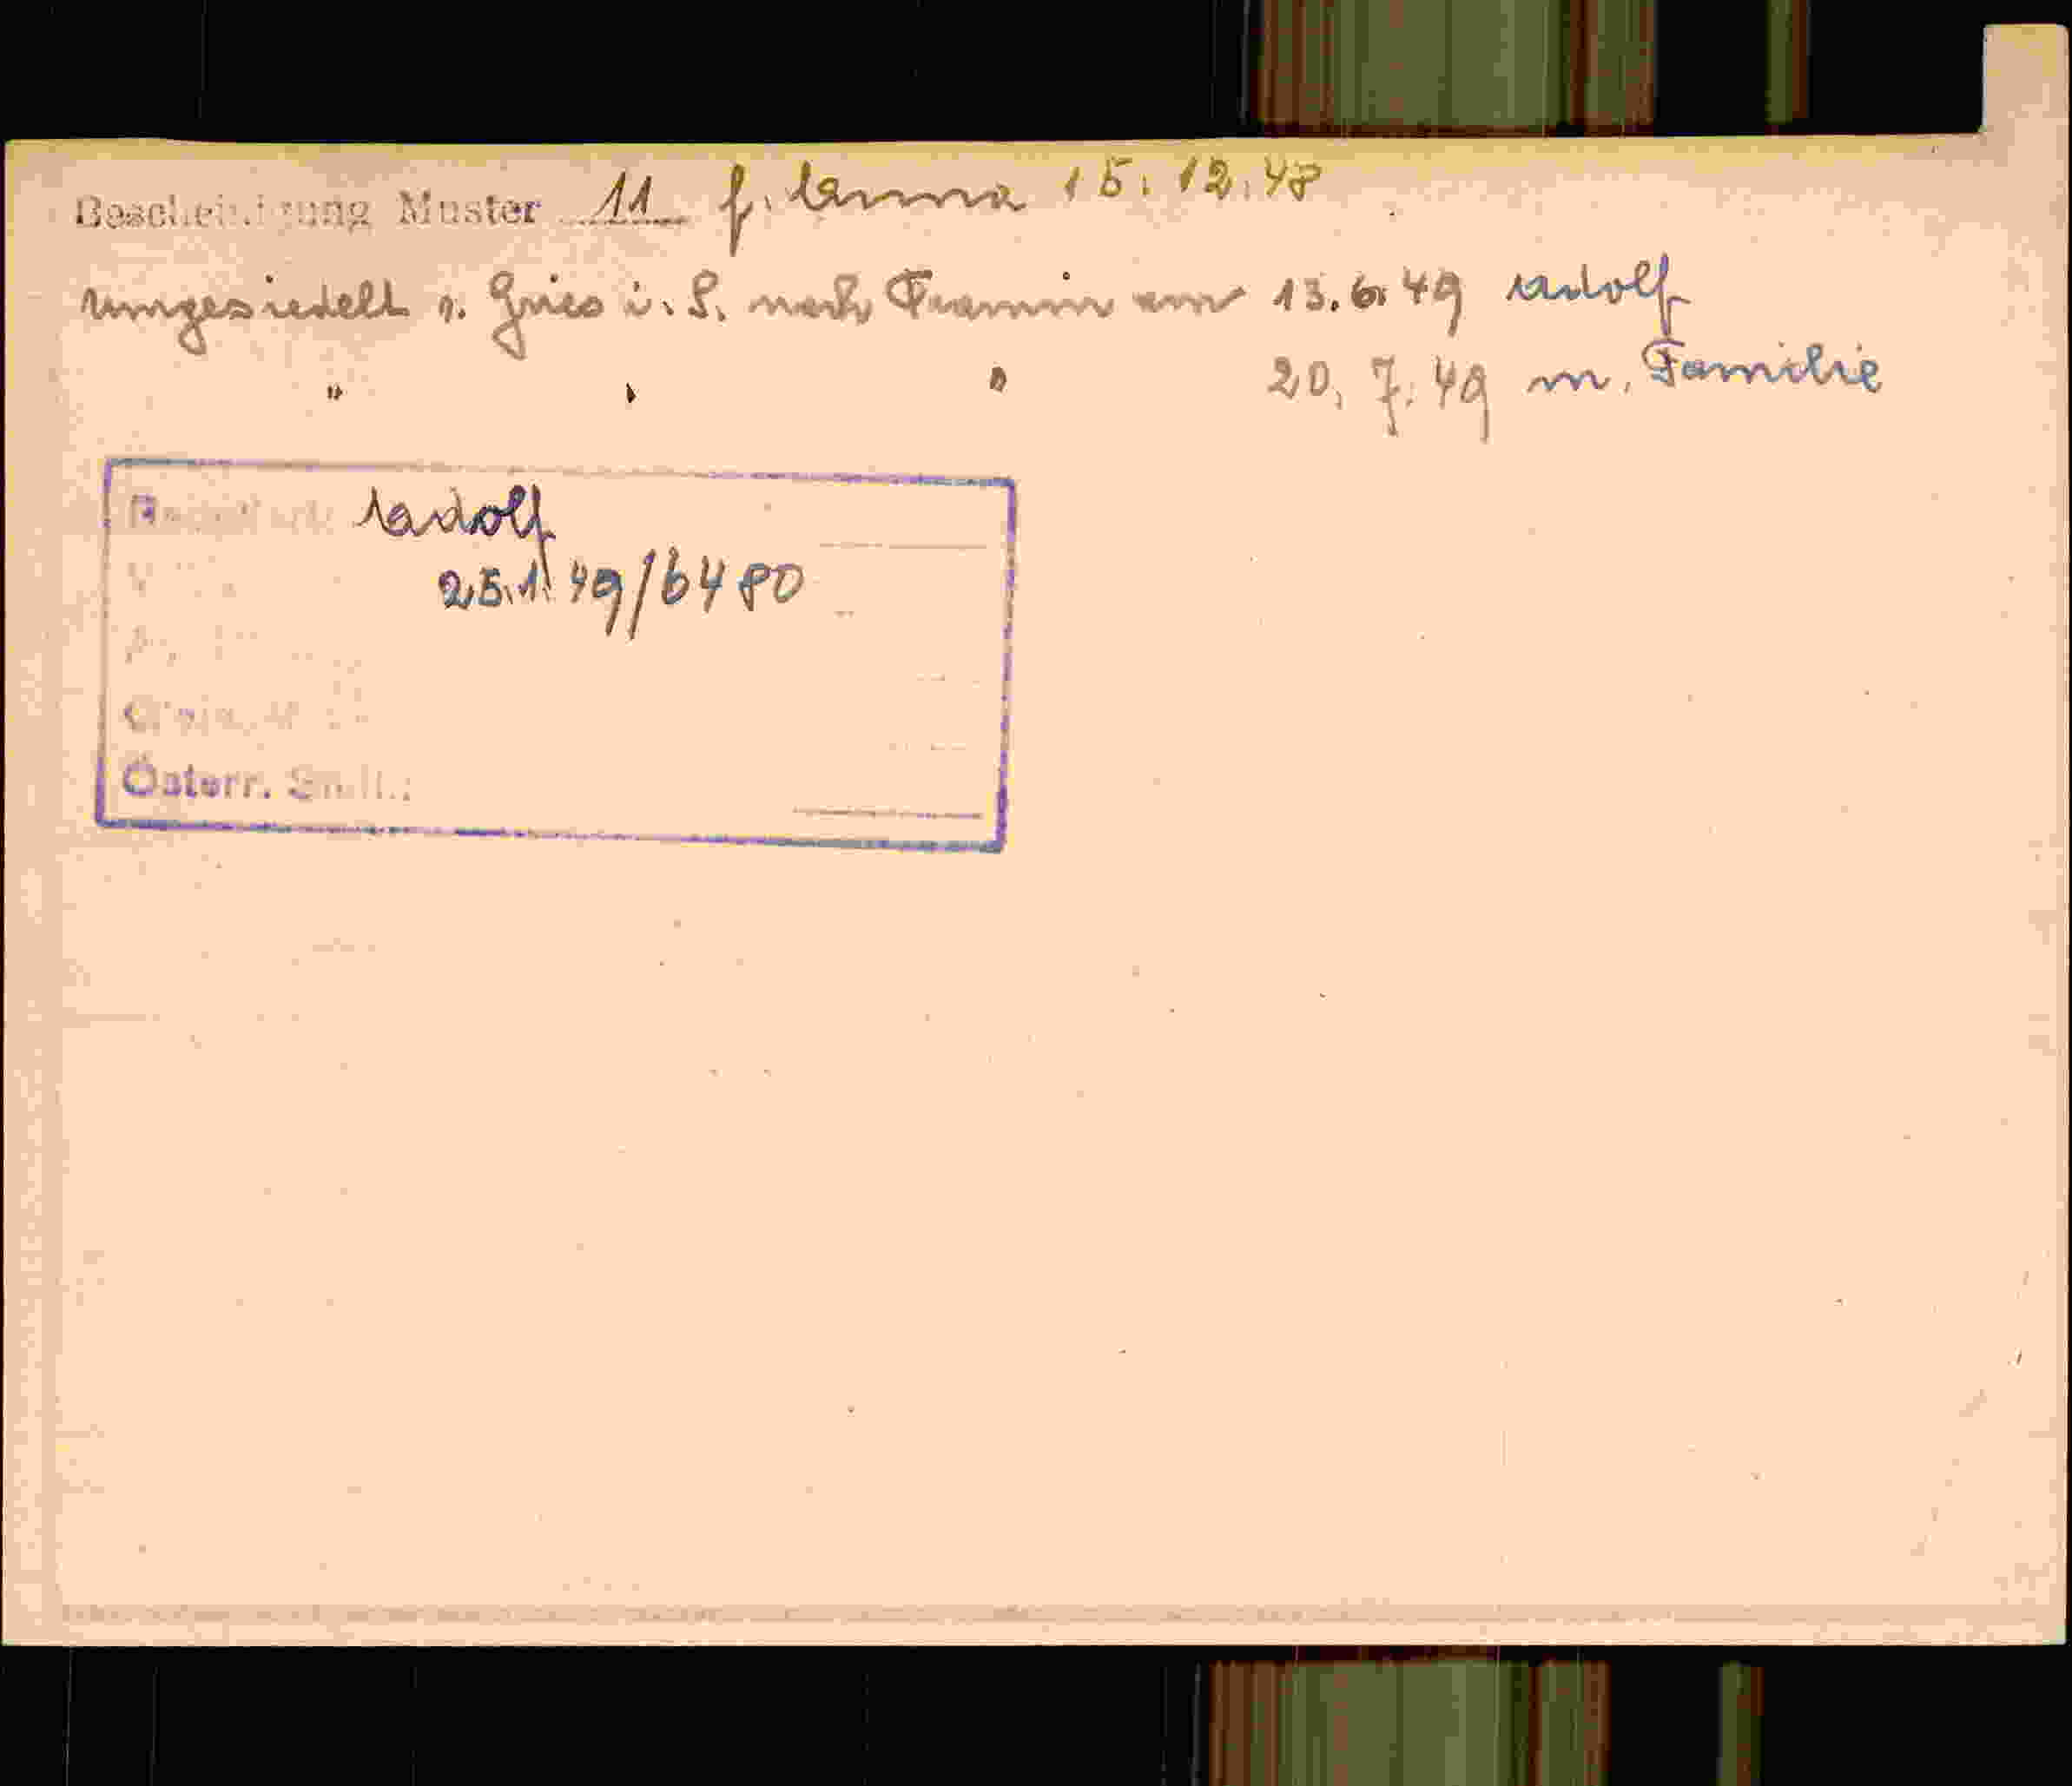 Bescheinigung Muster 11 f. Anna 15.12.48
umgesiedelt v. Gries i. S. nach Tramin am 13.6.49 Adolf
" " " 20.7.49 m. Familie
Adolf
25.1.49/6480
Österr.